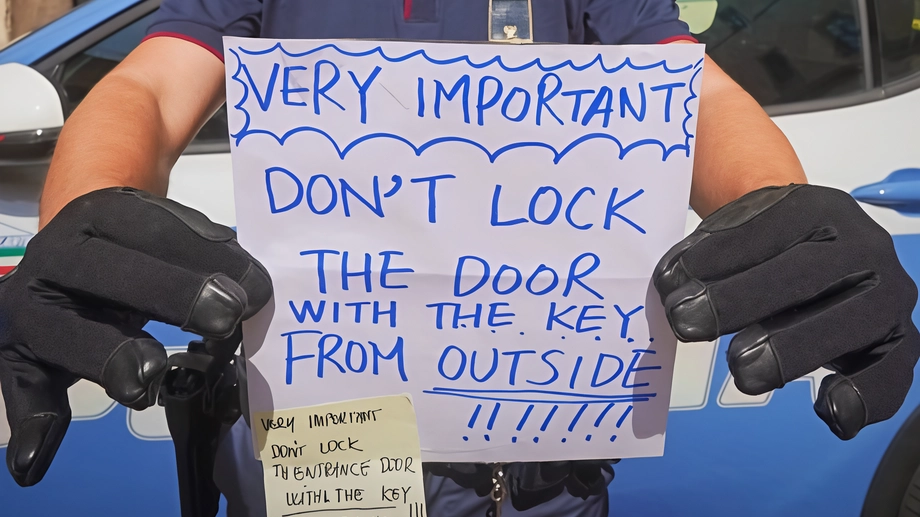 VERY IMPORTANT
DON'T LOCK
THE DOOR
WITH THE KEY
FROM OUTSIDE
!!!!!!!
VERY IMPORTANT
DON'T LOCK
TH ENTRANCE DOOR
WITH THE KEY
!!!